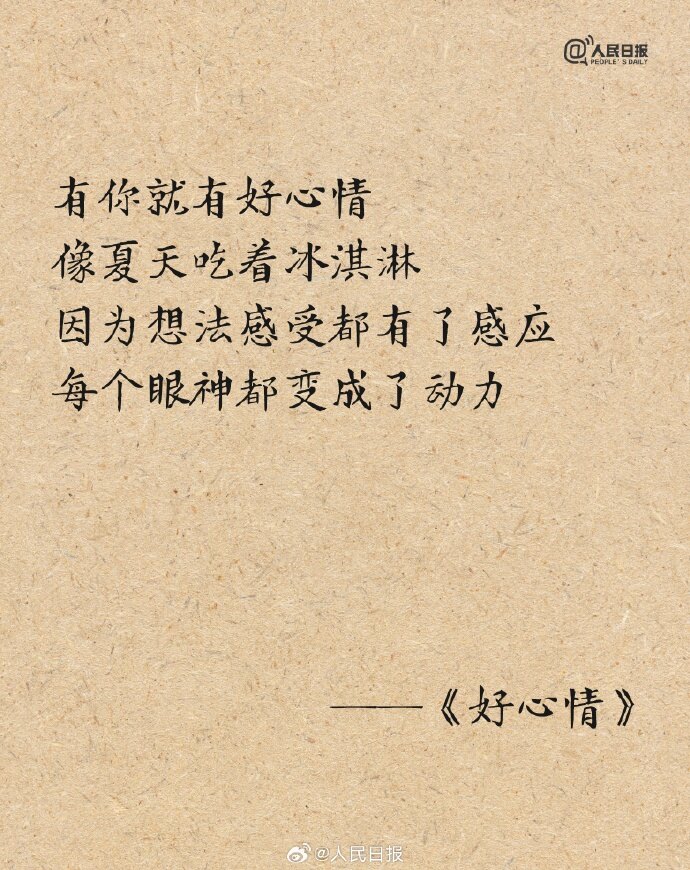 @人民日报
PEOPLE'S DAILY
有你就有好心情
像夏天吃着冰淇淋
因为想法感受都有了感应
每个眼神都变成了动力
——《好心情》
@人民日报